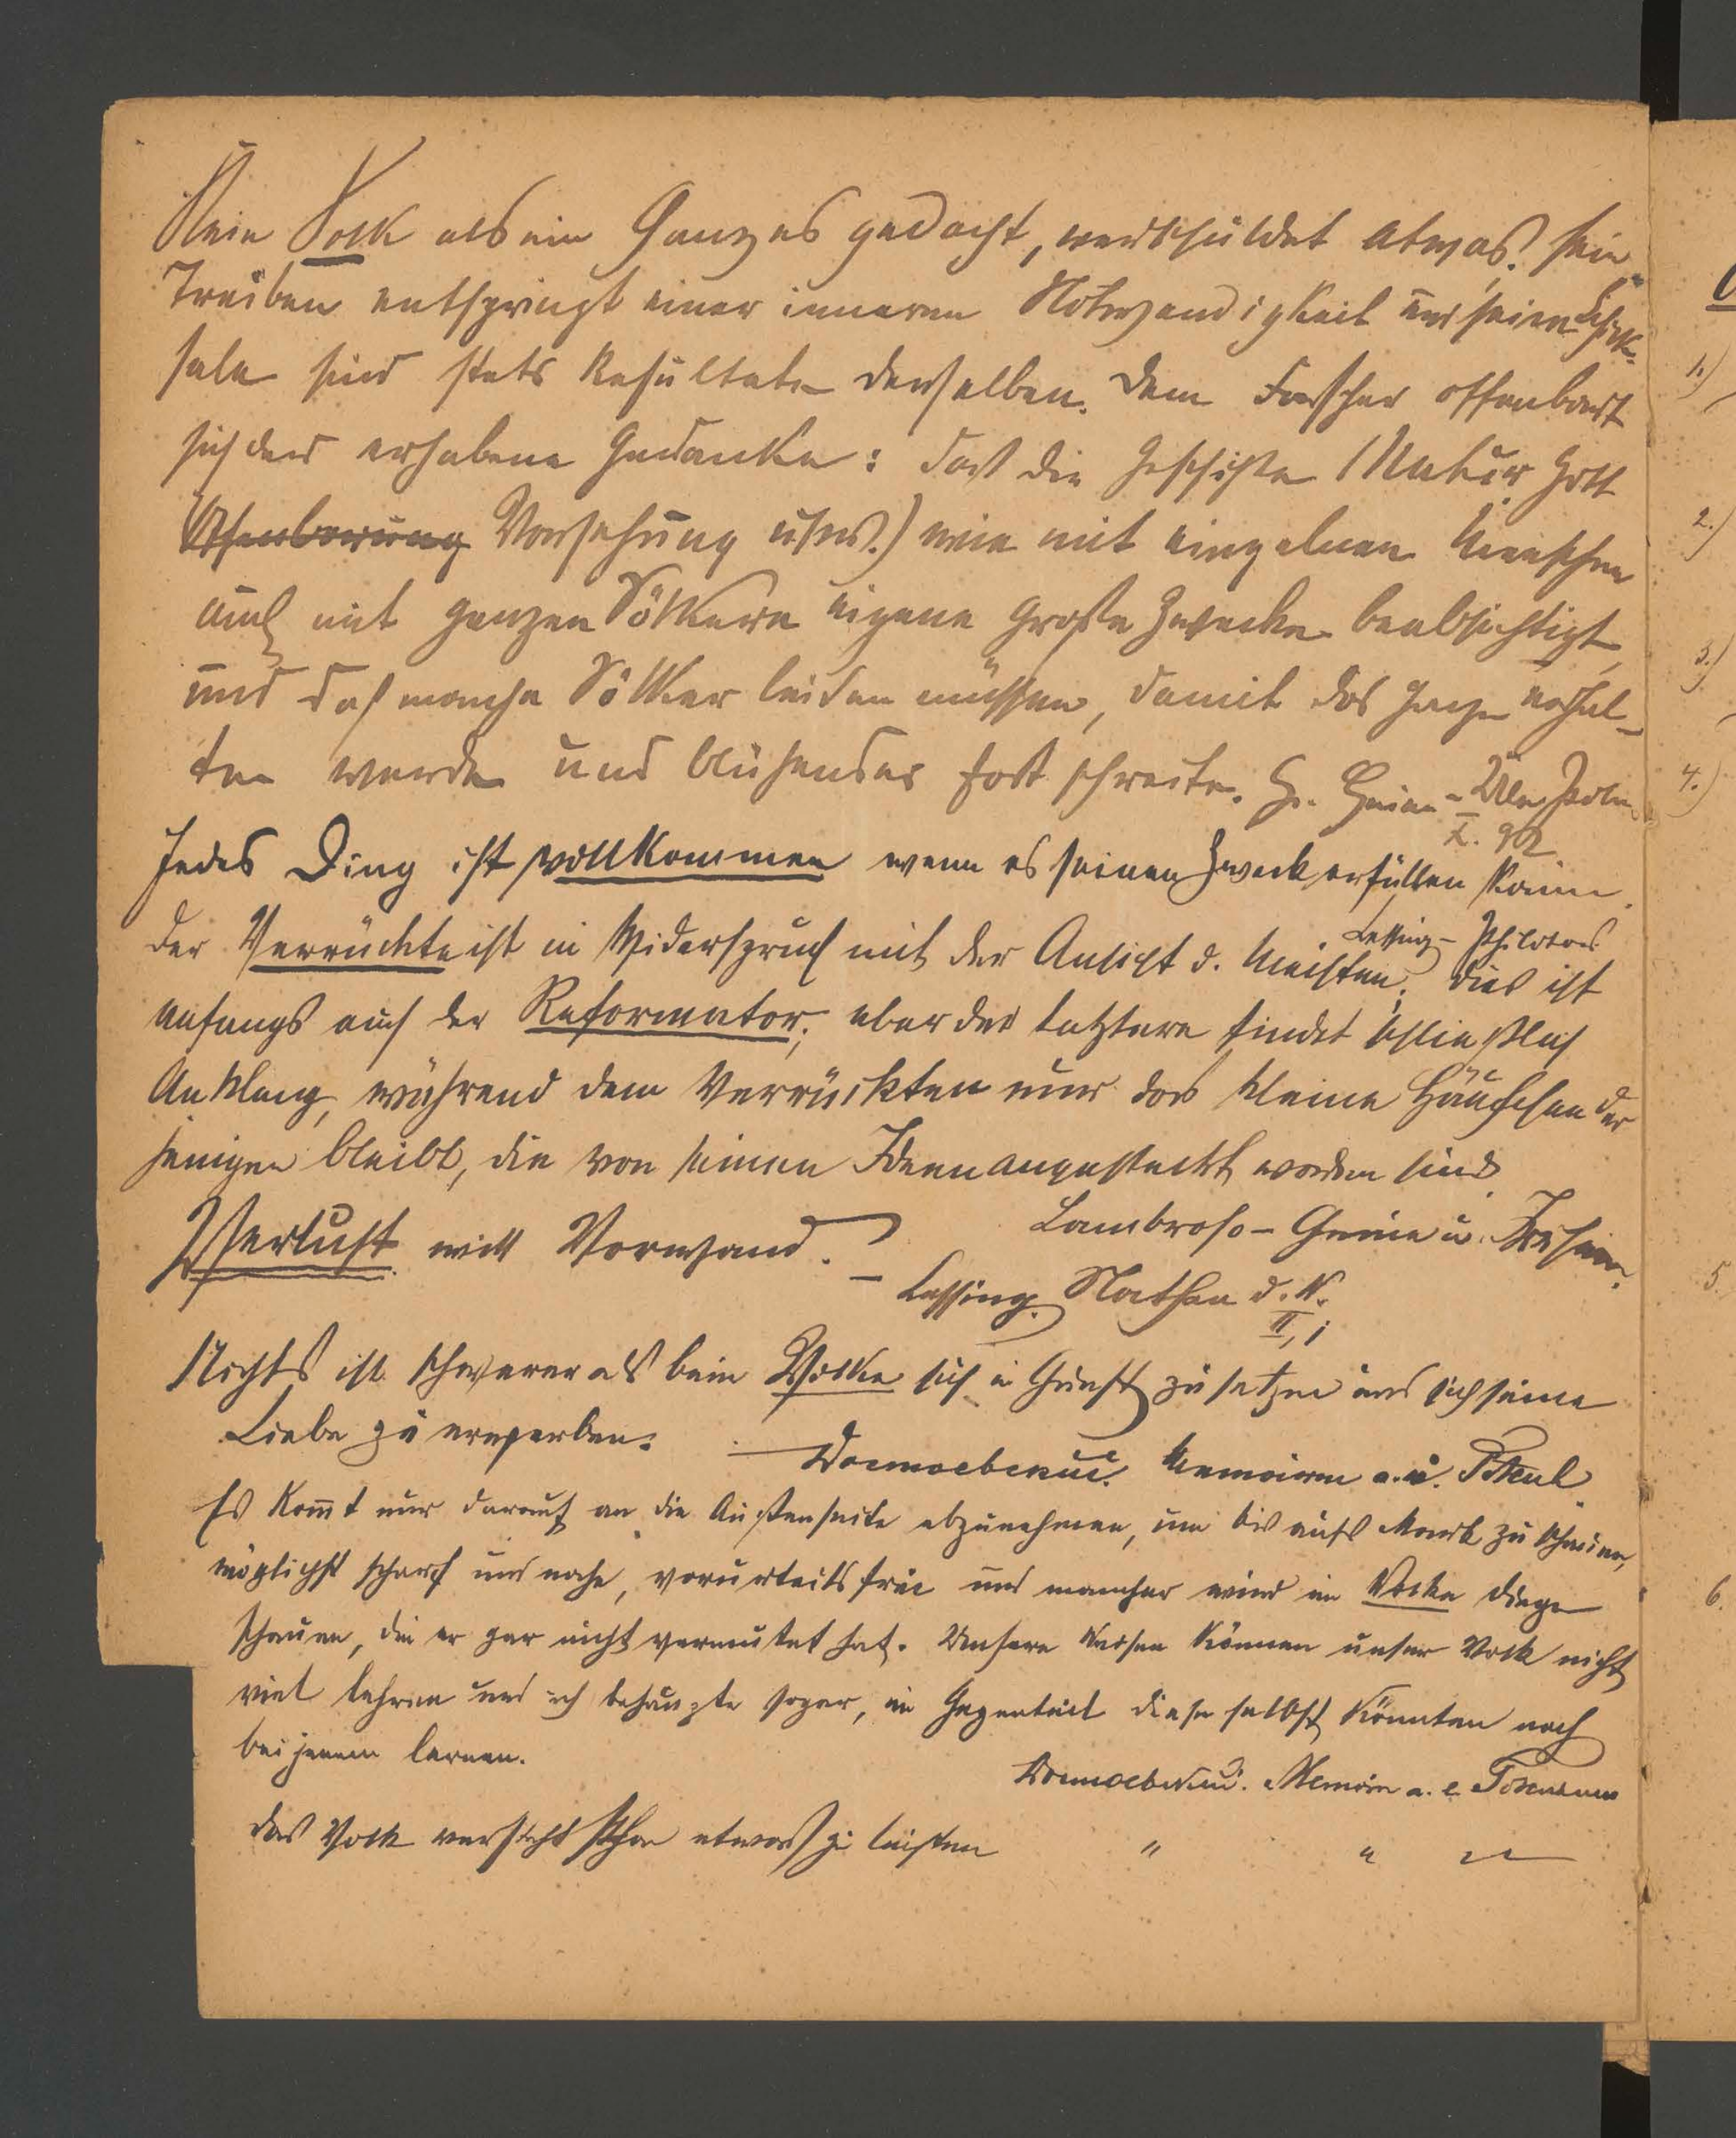 Kein Volk als ein Ganzes gedacht, verschuldet etwas. Sein
Treiben entspringt einer inneren Notwendigkeit und seine Schick-
sale sind stets Resultate derselben. Dem Forscher offenbart
sich der erhabene Gedanke: dass die Geschichte (Natur Gott
Offenbarung Vorsehung usw.) wie mit einzelnen Menschen
auch mit ganzen Völkern eigene große Zwecke beabsichtigt,
und daß manche Völker leiden müssen, damit das Ganze erhal-
ten werde und blühender fortschreite. H. Heine - Über Polen
X. 92
Jedes Ding ist vollkommen wenn es seinen Zweck erfüllen kann.
Lessing - Philotas
Der Verrückte ist in Widerspruch mit der Ansicht d. Meisten; dies ist
anfangs auch der Reformator; aber der letztere findet schließlich
Anklang, während dem Verrückten nur das kleine Häufchen der
jenigen bleibt, die von seinen Ideen angesteckt worden sind.
Lombroso - Genie u. Irrsinn.
Verlust will Vorwand.
– Lessing. Nathan d. W.
II, 1
Nichts ist schwerer als beim Volke sich in Gunst zu setzen und sich seine
Liebe zu erwerben.
Достоевский. Memoiren a. e. Totenh.
Es kom̅t nur darauf an die Außenseite abzunehmen, um bis aufs Mark zu schauen,
möglichst scharf und nahe, vorurteilsfrei und mancher wird im Volke Dinge
schauen, die er gar nicht vermutet hat. Unsere Weisen können unser Volk nicht
viel lehren und ich behaupte sogar, im Gegenteil diese selbst könnten noch
bei jenem lernen.
Достоевский. Memoire a. e Totenhaus
Das Volk versteht schon etwas zu leisten " " "
1.)
2.)
3.)
4.)
5.
6.